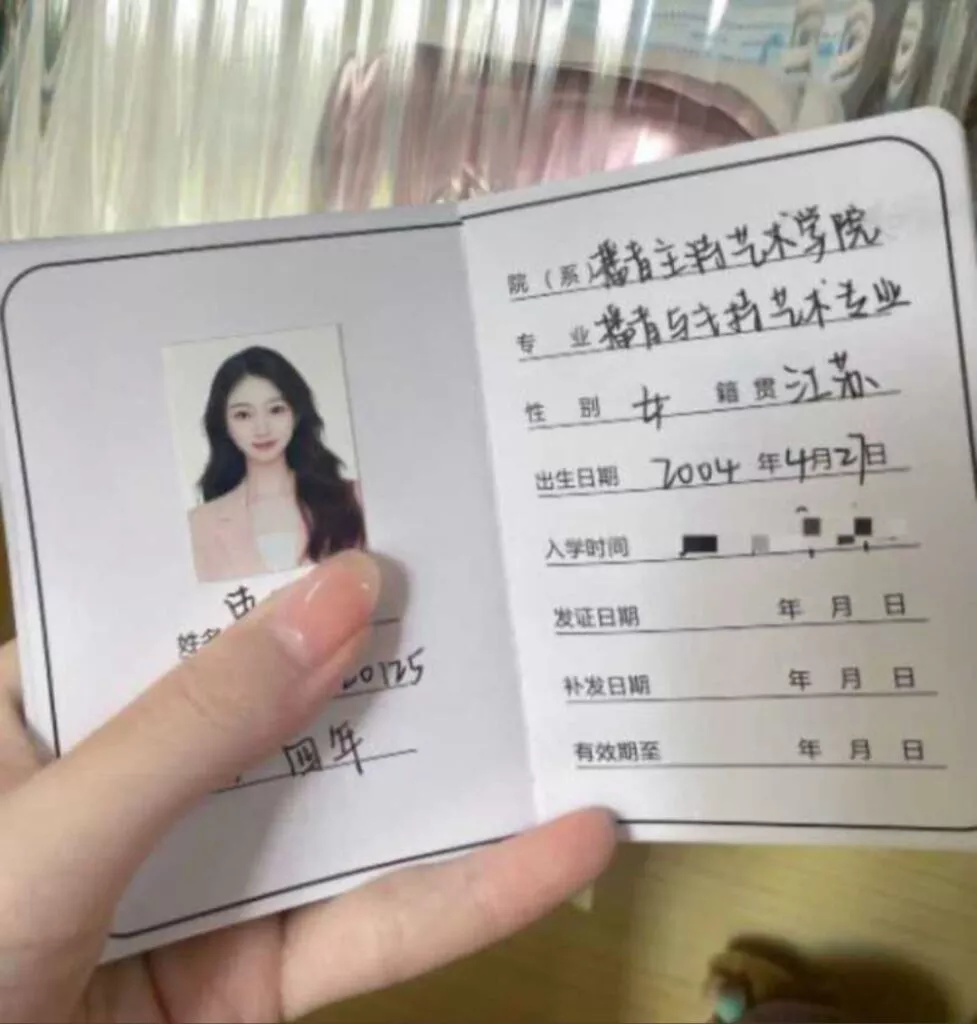 姓名
20125
四年
院（系）播音主持艺术学院
专业 播音与主持艺术专业
性别 女 籍贯 江苏
出生日期 2004年4月27日
入学时间
发证日期 年 月 日
补发日期 年 月 日
有效期至 年 月 日